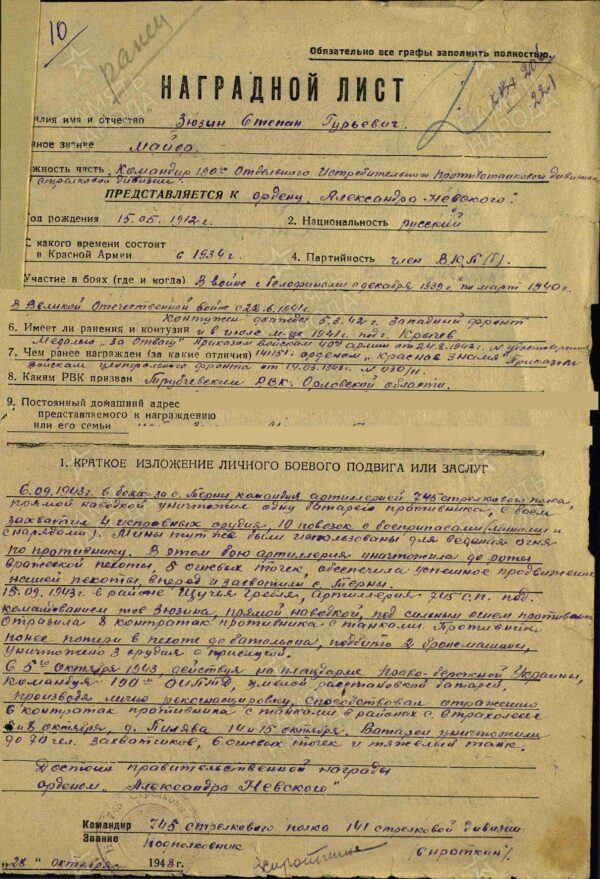 10
рансу
Обязательно все графы заполнить полностью.
НАГРАДНОЙ ЛИСТ
илия имя и отчество Зюзин Степан Гурьевич.
вное звание майор
жность часть Командир 190го Отдельного Истребительного Противотанкового дивизиона
Стрелковой дивизии
ПРЕДСТАВЛЯЕТСЯ К ордену „Александра Невского".
од рождения 15.05.1912 г. 2. Национальность русский
С какого времени состоит
в Красной Армии с 1934 г. 4. Партийность член ВКП(б).
Участие в боях (где и когда) В войне с белофинами с декабря 1939 г. по март 1940 г.
В Великой Отечественной войне с 22.6.1941 г.
Контужен 5.8.42 г. Западный фронт
6. Имеет ли ранения и контузии и в июле м-це 1941 г. под г. Кричев
Медалью „За отвагу" Приказом войскам 40й армии от 24.8.1942 г. N удостоверения
7. Чем ранее награжден (за какие отличия) орденом „Красное Знамя" Приказом
Войскам Центрального фронта от 14.03.1943 г. N 030/н.
8. Каким РВК призван Трубчевским РВК. Орловской области.
9. Постоянный домашний адрес
представляемого к награждению
или его семьи
1. КРАТКОЕ ИЗЛОЖЕНИЕ ЛИЧНОГО БОЕВОГО ПОДВИГА ИЛИ ЗАСЛУГ
6.09.1943 г. в боях за с. Терны, командуя артиллерией 745 стрелкового полка,
прямой наводкой уничтожил одну батарею противника, с боем
захватил 4 исправных орудия, 10 повозок с боеприпасами (минами и
снарядами). Мины тут же были использованы для ведения огня
по противнику. В этом бою артиллерия уничтожила до роты
вражеской пехоты, 5 огневых точек, обеспечила успешное продвижение
нашей пехоты, вперед и захватили с. Терны.
15.09.1943 г. в районе Щучья Гребля, артиллерия 745 с.п. под
командованием тов Зюзина, прямой наводкой, под сильным огнем противника
отразила 8 контратак противника с танками. Противник
понес потери в пехоте до батальона, подбито 2 бронемашины,
уничтожено 3 орудия с прислугой.
С 5го октября 1943, действуя на плацдарме Право-бережной Украины,
командуя 190м ОИПТД, умелой расстановкой батарей,
производя лично рекогносцировку, способствовал отражению
контратак противника с танками в районах с.
8 октября, д. Пилява 14 и 15 октября. Батареи уничтожили
до 70 чел. захватчиков, 6 огневых точек и тяжелый танк.
Достоин правительственной награды
орденом „Александра Невского"
Командир 745 стрелкового полка 141 стрелковой дивизии
Звание подполковник
„28" октября 1943 г.